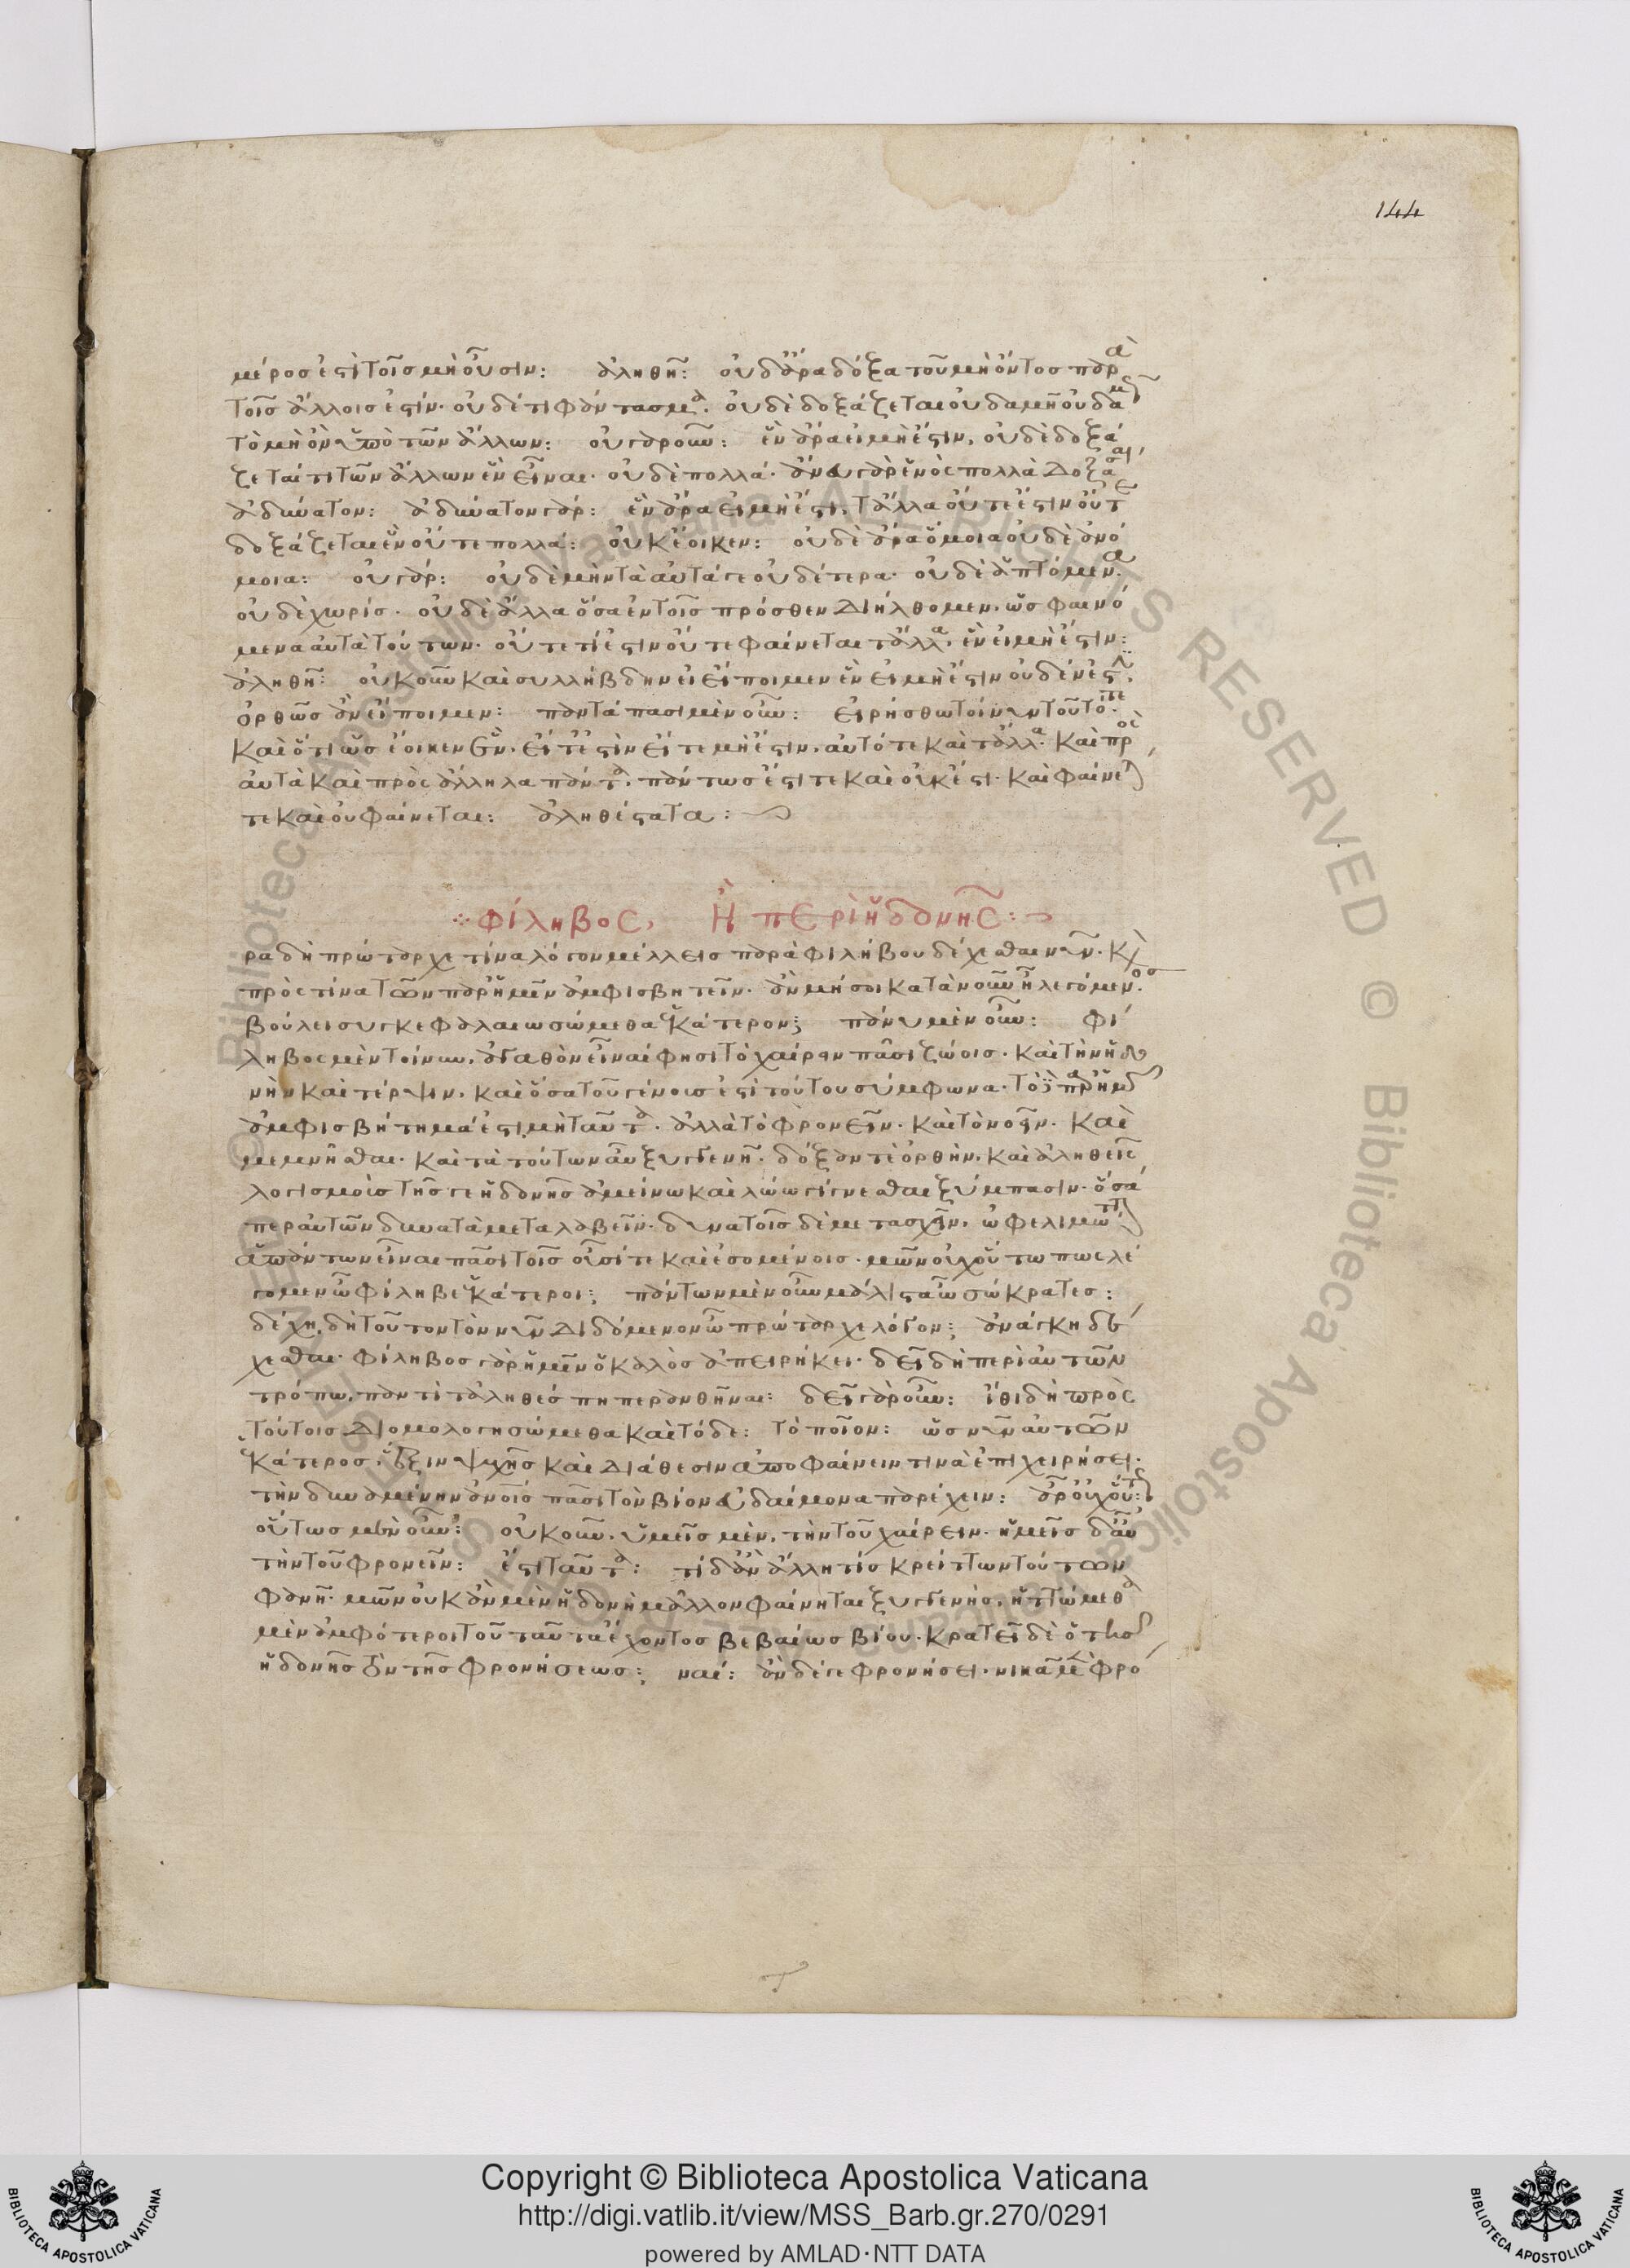 144
μέρος ἐστὶ τοῖς μὴ οὖσιν: ἀληθῆ: οὐδ' ἄρα δόξα τοῦ μὴ ὄντος παρὰ
τοῖς ἄλλοις ἐστίν· οὐδέ τι φάντασμα· οὐδὲ δοξάζεται οὐδαμῇ οὐδαμῶς
τὸ μὴ ὂν ὑπὸ τῶν ἄλλων: οὐ γὰρ οὖν: ἓν ἄρα εἰ μὴ ἔστιν, οὐδὲ δοξά
ζεταί τι τῶν ἄλλων ἓν εἶναι· οὐδὲ πολλά· ἄνευ γὰρ ἑνὸς πολλὰ δοξάσαι,
ἀδύνατον: ἀδύνατον γάρ: ἓν ἄρα εἰ μὴ ἔστι, τἆλλα οὔτε ἔστιν οὔτε
δοξάζεται ἓν οὔτε πολλά: οὐκ ἔοικεν: οὐδὲ ἄρα ὅμοια οὐδὲ ἀνό
μοια: οὐ γάρ: οὐδὲ μὴν τὰ αὐτά γε οὐδ' ἕτερα· οὐδὲ ἁπτόμενα·
οὐδὲ χωρίς· οὐδὲ ἄλλα ὅσα ἐν τοῖς πρόσθεν διήλθομεν, ὡς φαινό
μενα αὐτὰ τούτων· οὔτε τί ἐστιν οὔτε φαίνεται τἆλλα, ἓν εἰ μὴ ἔστιν:
ἀληθῆ: οὐκοῦν καὶ συλλήβδην εἰ εἴποιμεν ἓν εἰ μὴ ἔστιν οὐδέν ἐστιν,
ὀρθῶς ἂν εἴποιμεν: παντάπασι μὲν οὖν: εἰρήσθω τοίνυν τοῦτό τε·
καὶ ὅτι ὡς ἔοικεν ἓν, εἴτ' ἔστιν εἴτε μὴ ἔστιν, αὐτό τε καὶ τἆλλα· καὶ πρὸς
αὑτὰ καὶ πρὸς ἄλληλα πάντα, πάντως ἔστι τε καὶ οὐκ ἔστι· καὶ φαίνεταί
τε καὶ οὐ φαίνεται: ἀληθέστατα:
Φίληβος, ἢ περὶ ἡδονῆς:
ρα δὴ πρώταρχε τίνα λόγον μέλλεις παρὰ φιλήβου δέχεσθαι νῦν· καὶ
πρὸς τίνα τῶν παρ' ἡμῖν ἀμφισβητεῖν· ἂν μή σοι κατὰ νοῦν ᾖ λεγόμενος·
βούλει συγκεφαλαιωσώμεθα ἑκάτερον; πάνυ μὲν οὖν: φί
ληβος μὲν τοίνυν, ἀγαθὸν εἶναί φησι τὸ χαίρειν πᾶσι ζώοις· καὶ τὴν ἡδο
νὴν καὶ τέρψιν, καὶ ὅσα τοῦ γένους ἐστὶ τούτου σύμφωνα· τὸ δὲ παρ' ἡμῶν
ἀμφισβήτημά ἐστι μὴ ταῦτα· ἀλλὰ τὸ φρονεῖν· καὶ τὸ νοεῖν· καὶ
μεμνῆσθαι· καὶ τὰ τούτων αὖ ξυγγενῆ· δόξαν τε ὀρθὴν, καὶ ἀληθεῖς
λογισμοὺς τῆς γε ἡδονῆς ἀμείνω καὶ λώω γίγνεσθαι ξύμπασιν· ὅσα
περ αὐτῶν δυνατὰ μεταλαβεῖν· δυνατοῖς δὲ μετασχεῖν, ὠφελιμώτατον
ἁπάντων εἶναι πᾶσι τοῖς οὖσί τε καὶ ἐσομένοις· μῶν οὐχ οὕτω πως λέ
γομεν ὦ φίληβε ἑκάτεροι; πάντων μὲν οὖν μάλιστα ὦ σώκρατες:
δέχῃ, δὴ τοῦτον τὸν νῦν διδόμενον ὦ πρώταρχε λόγον; ἀνάγκη δέ
χεσθαι· φίληβος γὰρ ἡμῖν ὁ καλὸς ἀπείρηκει· δεῖ δὴ περὶ αὐτῶν
τρόπῳ, παντὶ τἀληθές πῃ περανθῆναι: δεῖ γὰρ οὖν: ἴθι δὴ πρὸς
τούτοις διομολογησώμεθα καὶ τόδε: τὸ ποῖον: ὡς νῦν αὐτῶν
ἑκάτερος, ἕξιν ψυχῆς καὶ διάθεσιν ἀποφαίνειν τινὰ ἐπιχειρήσει·
τὴν δυναμένην ἀνοῖς πᾶσι τὸν βίον εὐδαίμονα παρέχειν: ἆρ' οὐχ οὕτως:
οὕτως μὲν οὖν: οὐκοῦν, ὑμεῖς μὲν, τὴν τοῦ χαίρειν· ἡμεῖς δ' αὖ
τὴν τοῦ φρονεῖν: ἔστι ταῦτα: τί δ' ἂν ἄλλη τίς κρείττων τούτων
φανῇ· μῶν οὐκ ἂν μὲν ἡδονῇ μᾶλλον φαίνηται ξυγγενὴς, ἡττώμεθα
μὲν ἀμφότεροι τοῦ ταῦτα ἔχοντος βεβαίως βίου· κρατεῖ δὲ ὁ τῆς
ἡδονῆς τὸν τῆς φρονήσεως; ναί: ἂν δέ γε φρονήσει· νικᾷ μὲν φρό
Copyright © Biblioteca Apostolica Vaticana
http://digi.vatlib.it/view/MSS_Barb.gr.270/0291
powered by AMLAD·NTT DATA